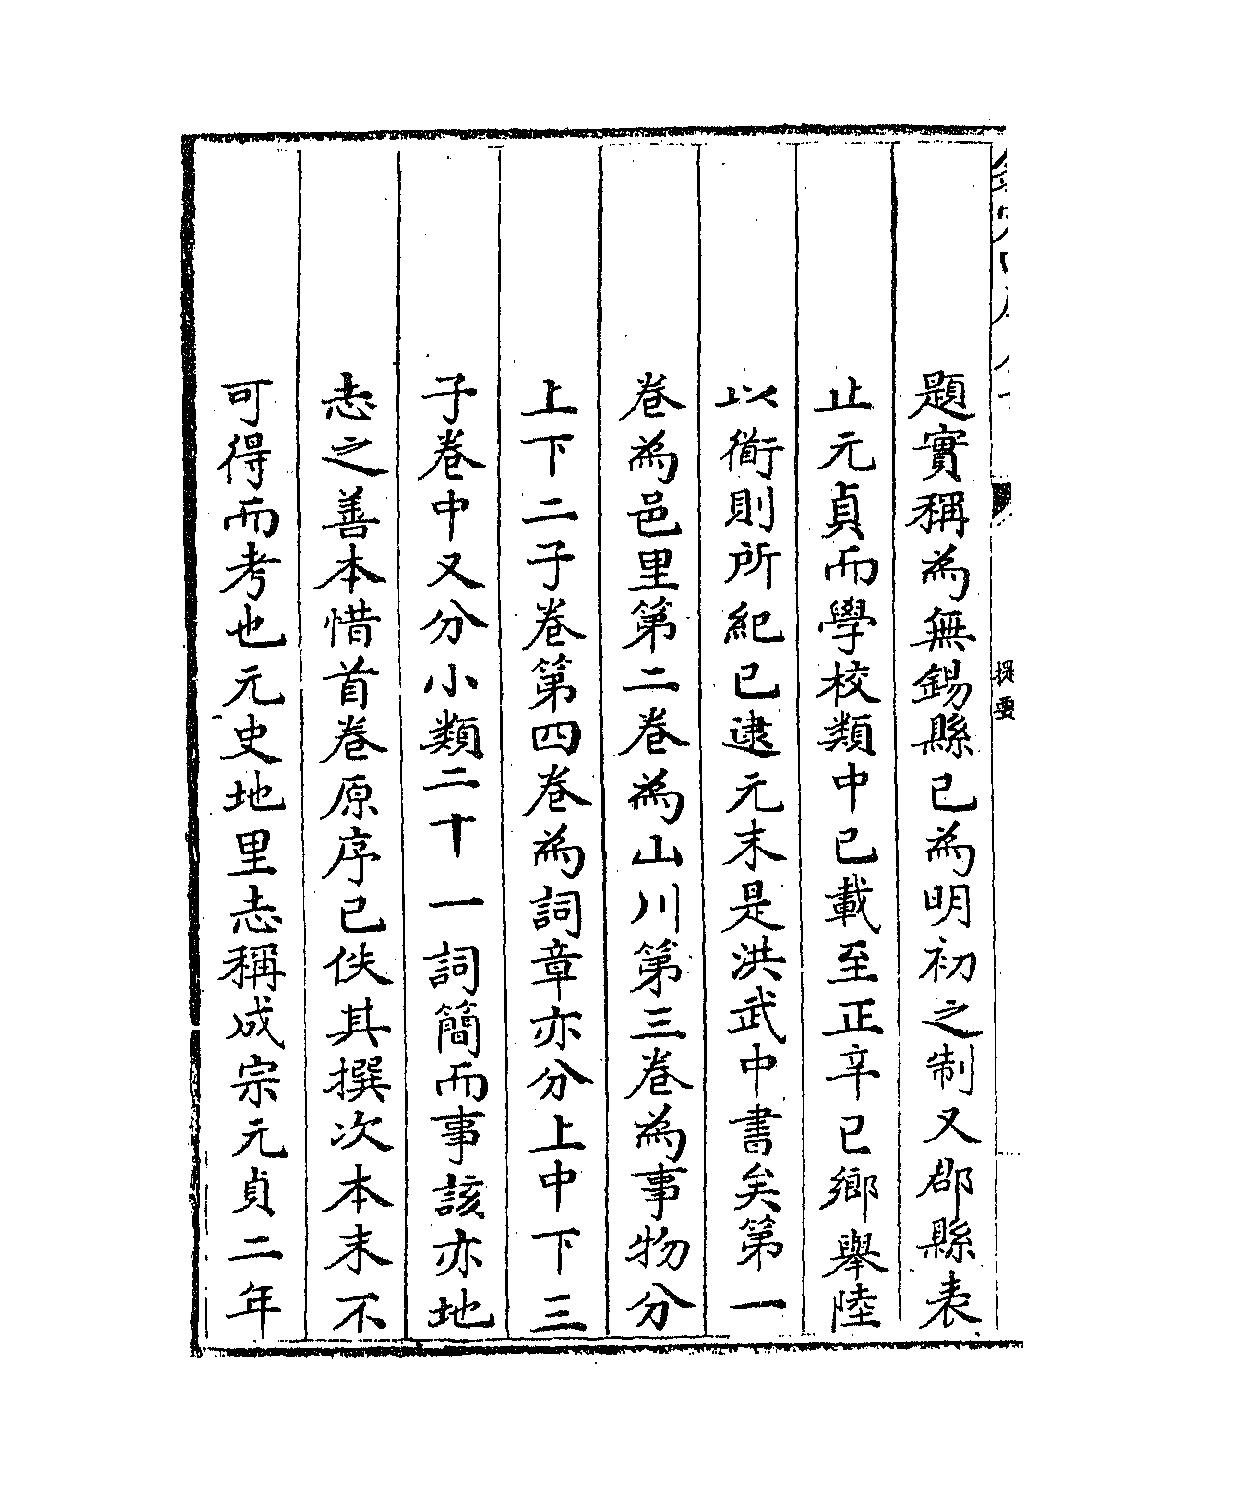 題實稱為無錫縣已為明初之制又郡縣表
止元貞而學校類中已載至正辛巳鄉舉陸
以衟則所紀已逮元末是洪武中書矣第一
卷為邑里第二卷為山川第三卷為事物分
上下二子卷第四卷為詞章亦分上中下三
子卷中又分小類二十一詞簡而事該亦地
志之善本惜首卷原序已佚其撰次本末不
可得而考也元史地里志稱成宗元貞二年
提要